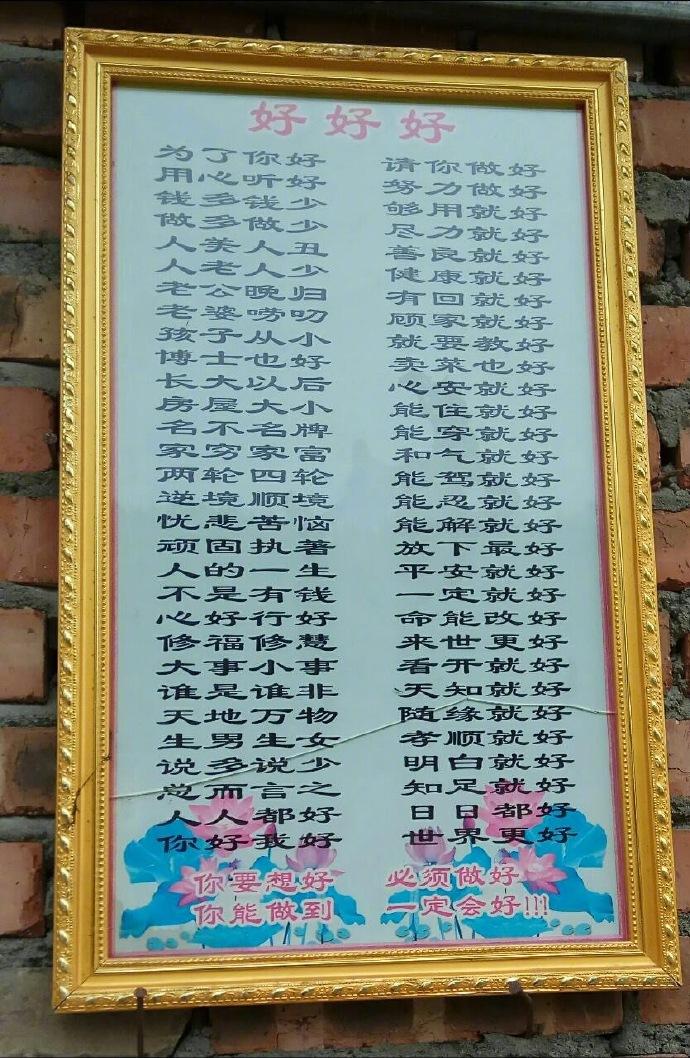 好好好
为了你好 请你做好
用心听好 努力做好
钱多钱少 够用就好
做多做少 尽力就好
人美人丑 善良就好
人老人少 健康就好
老公晚归 有回就好
老婆唠叨 顾家就好
孩子从小 就要教好
博士也好 卖菜也好
长大以后 心安就好
房屋大小 能住就好
名不名牌 能穿就好
家穷家富 和气就好
两轮四轮 能驾就好
逆境顺境 能忍就好
忧悲苦恼 能解就好
顽固执著 放下最好
人的一生 平安就好
不是有钱 一定就好
心好行好 命能改好
修福修慧 来世更好
大事小事 看开就好
谁是谁非 天知就好
天地万物 随缘就好
生男生女 孝顺就好
说多说少 明白就好
总而言之 知足就好
人人都好 日日都好
你好我好 世界更好
你要想好 必须做好
你能做到 一定会好!!!